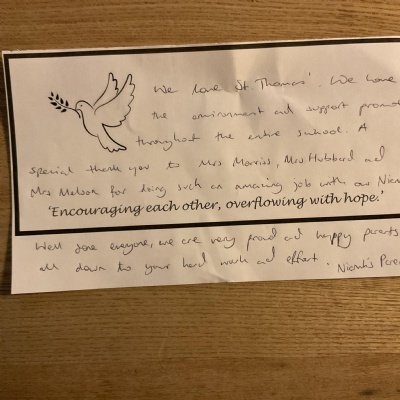 We love St. Thomas'. We love
the environment and support promot
throughout the entire school. A
special thank you to Mrs Morriss, Mrs Hubbard and
Mrs for doing such an amazing job with our
'Encouraging each other, overflowing with hope.'
Well done everyone, we are very proud and happy parents
all down to your hard work and effort.